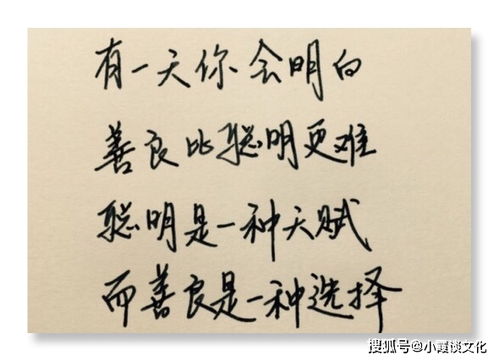 有一天你会明白
善良比聪明更难
聪明是一种天赋
而善良是一种选择
搜狐号@小霞谈文化